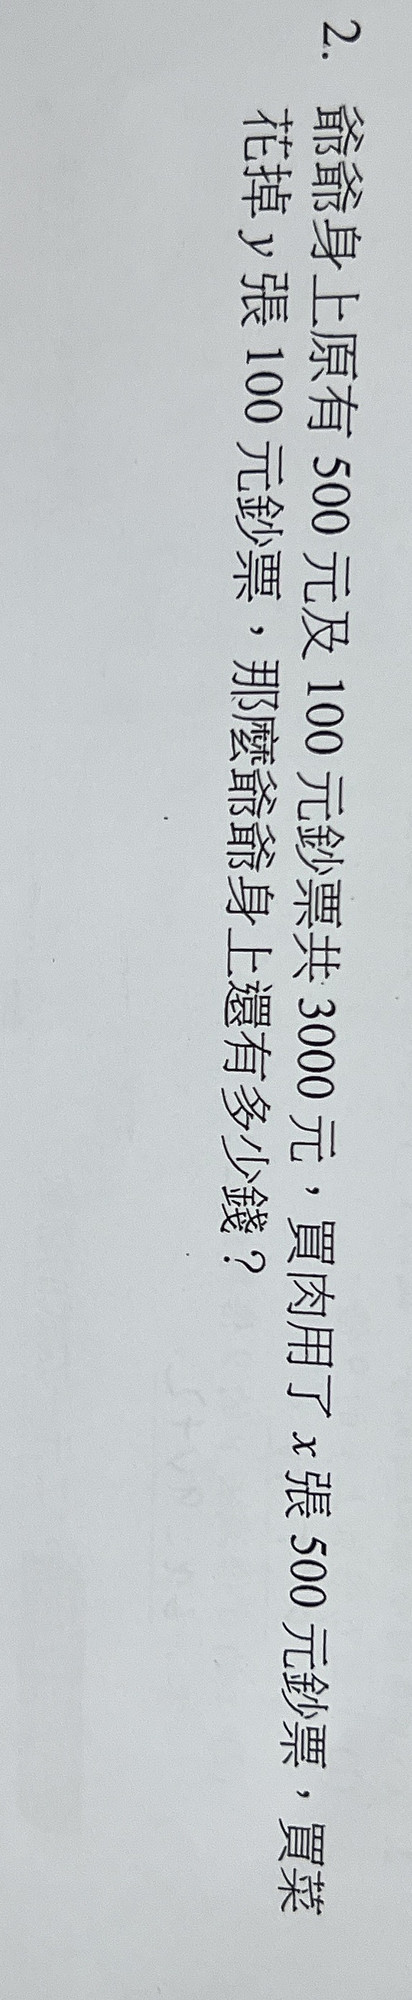 2. 爺爺身上原有 500 元及 100 元鈔票共 3000 元，買肉用了 x 張 500 元鈔票，買菜
花掉 y 張 100 元鈔票，那麼爺爺身上還有多少錢？